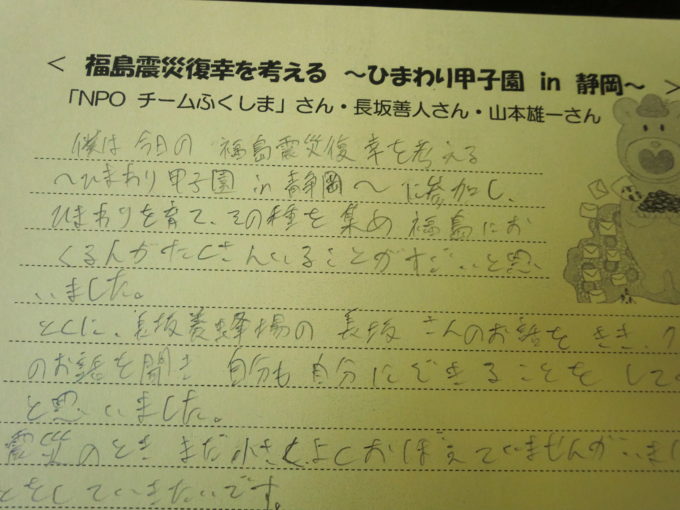 < 福島震災復幸を考える ～ひまわり甲子園 in 静岡～ >
「NPO チームふくしま」さん・長坂善人さん・山本雄一さん
僕は今日の 福島震災復幸を考える
～ひまわり甲子園 in 静岡～ に参加し、
ひまわりを育て、その種を集め 福島にお
くる人がたくさんいることがすごいと思い
いました。
とくに、長坂養蜂場の 長坂さんのお話をきき、
のお話を聞き 自分も自分にできることをして
と思いました。
震災のとき まだ小さくよくおぼえていませんがいまし
ことをしていきたいです。